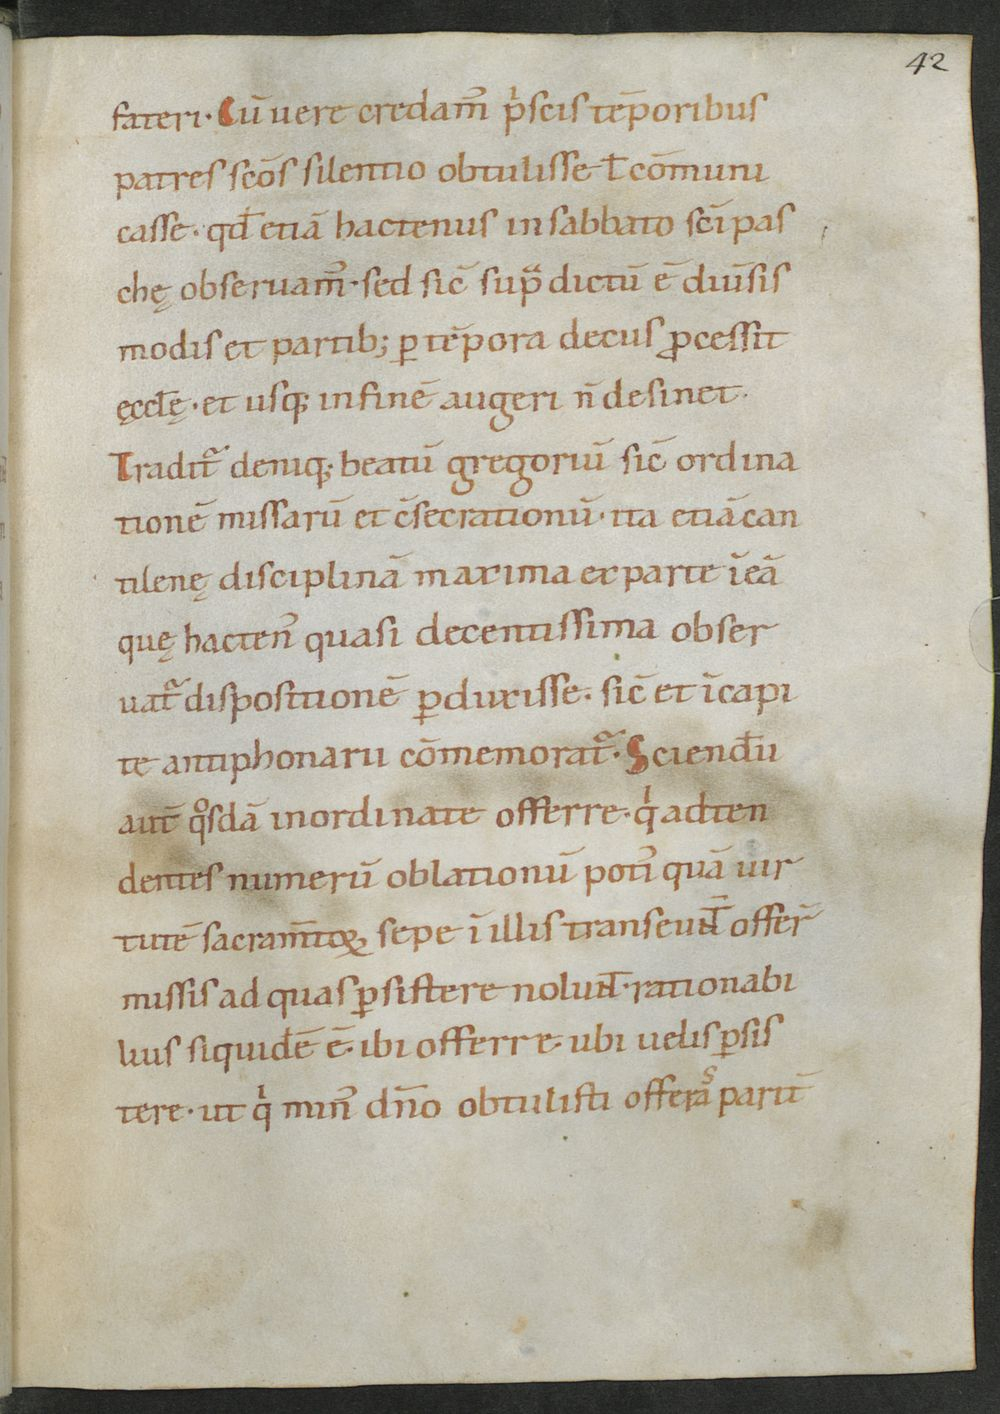 42
fateri. Cū uere credam᷒ pͥscis tēporibus
patres scōs silentio obtulisse ƚ cōmuni
casse. qđ etiā hactenus in sabbato sc̄i pas
chę obseruam᷒. sed sic̄ supͣ dictū ē diu̅sis
modis et partib; ꝑ tēpora decus ꝓcessit
ęccƚę. et usq; in finē augeri n̄ desinet.
Tradit᷑ deniq; beatū gregoriū sic̄ ordina
tionē missarū et c̄secrationū. ita etiā can
tilenę disciplinā maxima ex parte ī eā
quę hacten᷒ quasi decentissima obser
uat᷑ dispositionē ꝑduxisse. sic̄ et ī capi
te antiphonarii cōmemorat᷑. Sciendū
aut̄ qͦsdā inordinate offerre. qͥ adten
dentes numerū oblationū poti᷒ quā uir
tutē sacram̄toꝝ sepe ī illis transeunt̄ offer̄
missis ad quas ꝑsistere nolunt̄. rationabi
lius siquidē ē. ibi offerre. ubi uelis ꝑsis
tere. ut qͥ min᷒ dn̄o obtulisti offeras parit̄